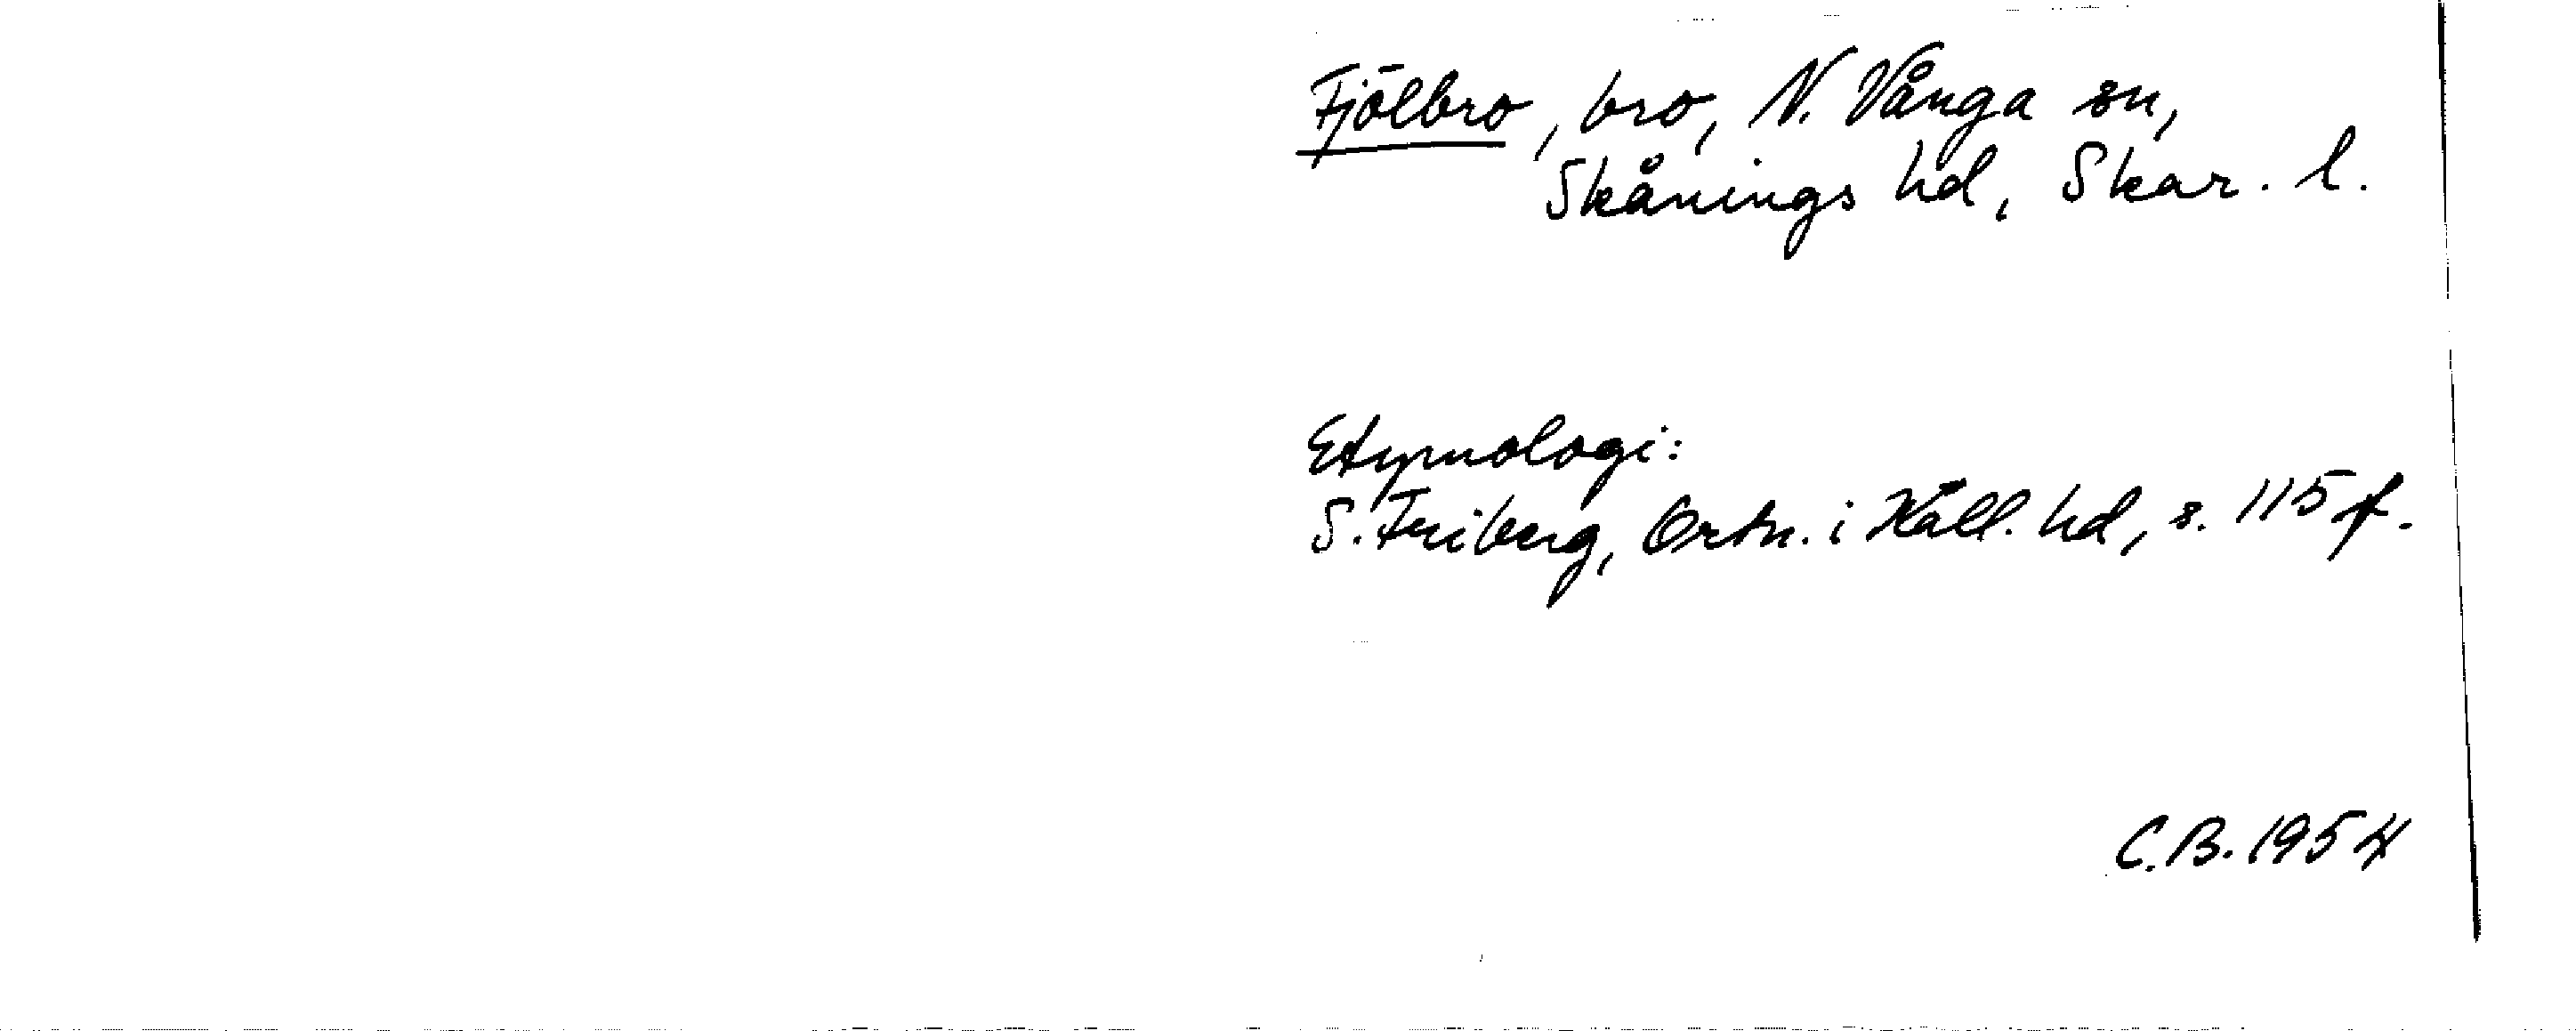 Fjölbro, bro, N. Vånga sn,
Skånings hd, Skar. l.
Etymologi:
S. Friberg, Ortn. i Kåll. hd, s. 115 f.
C.B. 1954